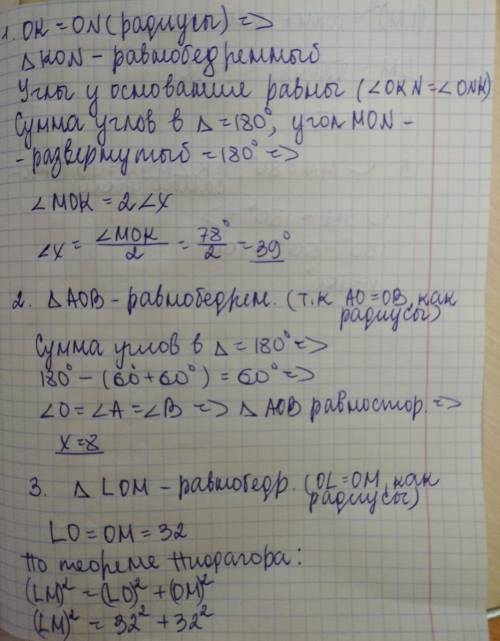 1. OK = ON (радиусы) =>
△KON - равнобедренный
Углы у основание равны (∠OKN=∠ONK)
Сумма углов в △=180°, угол MON -
- развернутый = 180° =>
∠MOK = 2∠X
∠X = ∠MOK/2 = 78°/2 = 39°
2. △AOB - равнобедрен. (т.к AO=OB, как
радиусы)
Сумма углов в △ = 180° =>
180° - (60+60°) = 60° =>
∠O = ∠A = ∠B => △AOB равностор. =>
x=8
3. △ LOM - равнобедр. (OL=OM, как
радиусы)
LO = OM = 32
По теореме Пифагора:
(LM)² = (LO)² + (OM)²
(LM)² = 32² + 32²